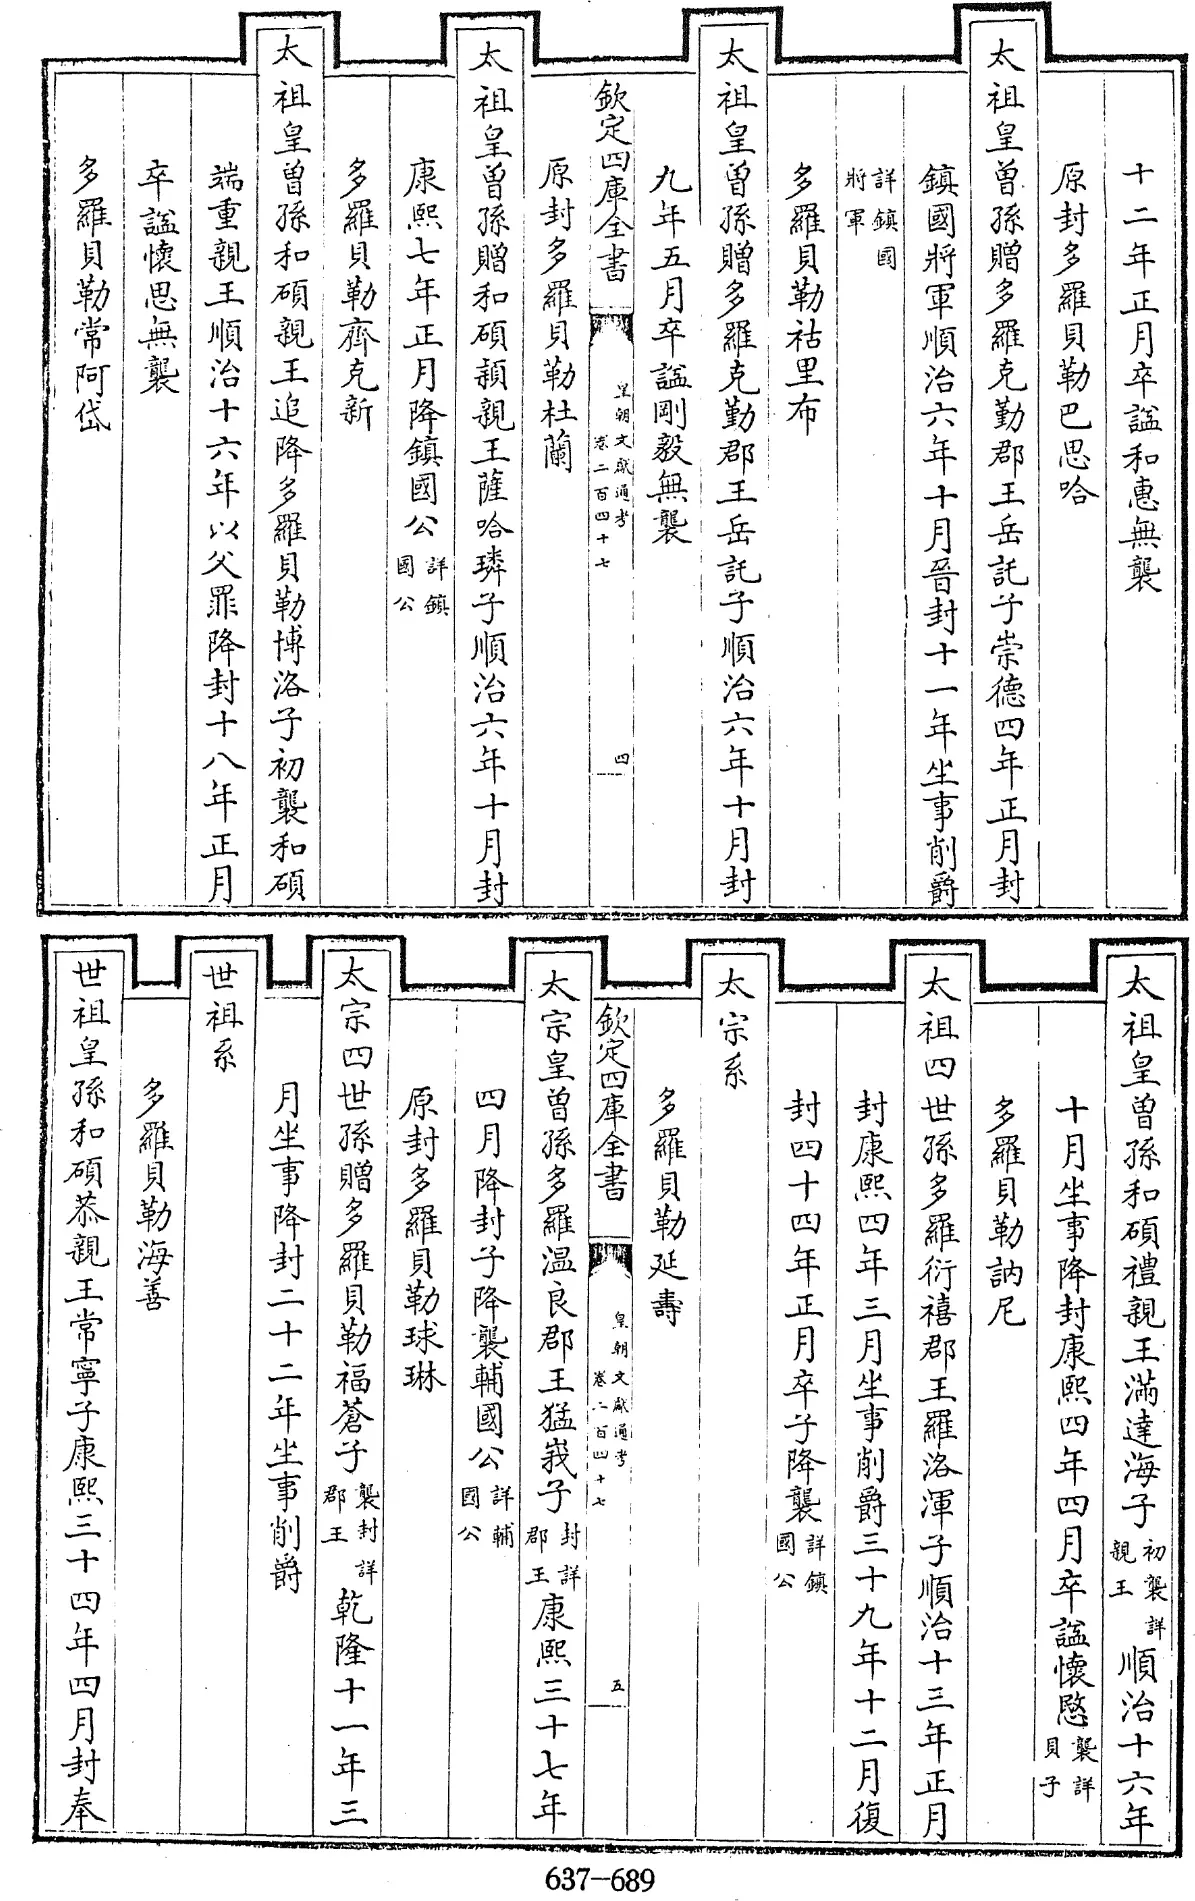 十二年正月卒諡和惠無襲
原封多羅貝勒巴思哈
太祖皇曾孫贈多羅克勤郡王岳託子崇德四年正月封
鎮國將軍順治六年十月晉封十一年坐事削爵
詳鎮國
將軍
多羅貝勒祜里布
太祖皇曾孫贈多羅克勤郡王岳託子順治六年十月封
九年五月卒諡剛毅無襲
欽定四庫全書
皇朝文獻通考
卷二百四十七
四
原封多羅貝勒杜蘭
太祖皇曾孫贈和碩穎親王薩哈璘子順治六年十月封
康熙七年正月降鎮國公詳鎮國公
多羅貝勒齊克新
太祖皇曾孫和碩親王追降多羅貝勒博洛子初襲和碩
端重親王順治十六年以父罪降封十八年正月
卒諡懷思無襲
多羅貝勒常阿岱
太祖皇曾孫和碩禮親王滿達海子初襲詳親王順治十六年
十月坐事降封康熙四年四月卒諡懷愍襲詳貝子
多羅貝勒訥尼
太祖四世孫多羅衍禧郡王羅洛渾子順治十三年正月
封康熙四年三月坐事削爵三十九年十二月復
封四十四年正月卒子降襲詳鎮國公
太宗系
多羅貝勒延壽
欽定四庫全書
皇朝文獻通考
卷二百四十七
五
太宗皇曾孫多羅温良郡王猛峩子封詳郡王康熙三十七年
四月降封子降襲輔國公詳輔國公
原封多羅貝勒球琳
太宗四世孫贈多羅貝勒福蒼子襲封詳郡王乾隆十一年三
月坐事降封二十二年坐事削爵
世祖系
多羅貝勒海善
世祖皇孫和碩恭親王常寧子康熙三十四年四月封奉
637-689